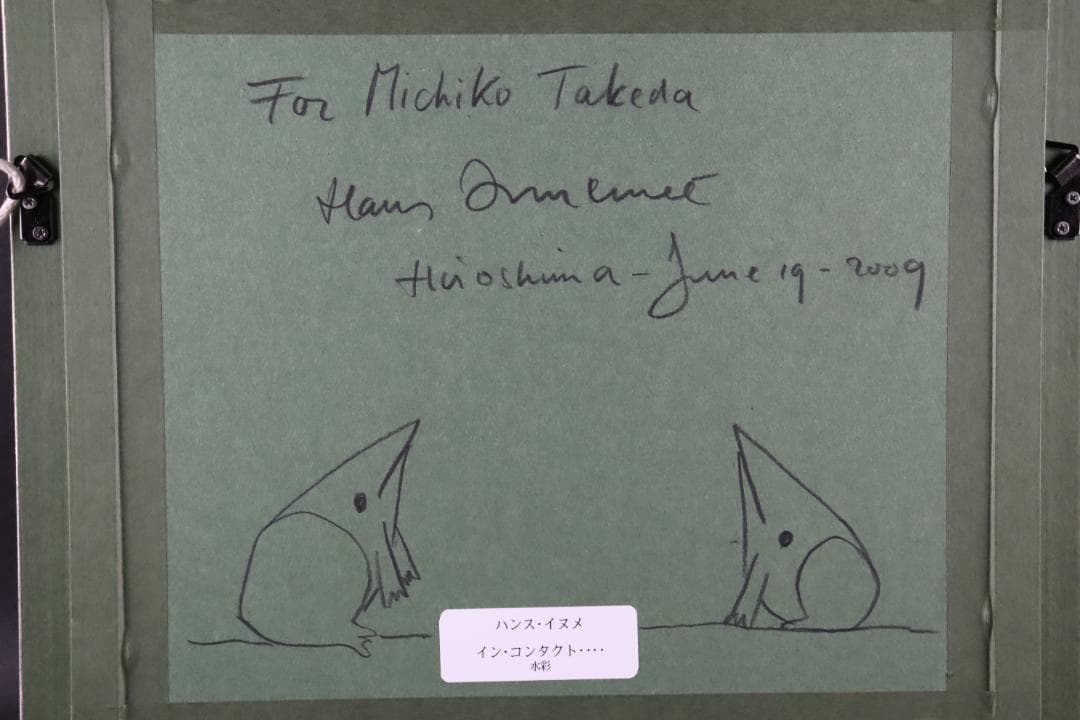 For Michiko Takeda
Hans Innemeé
Hiroshima - June 19 - 2009
ハンス・イヌメ
イン・コンタクト・・・・
水彩